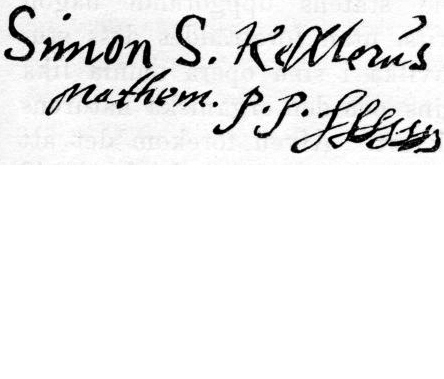 Simon S. Kexlerus
mathem. P. P.